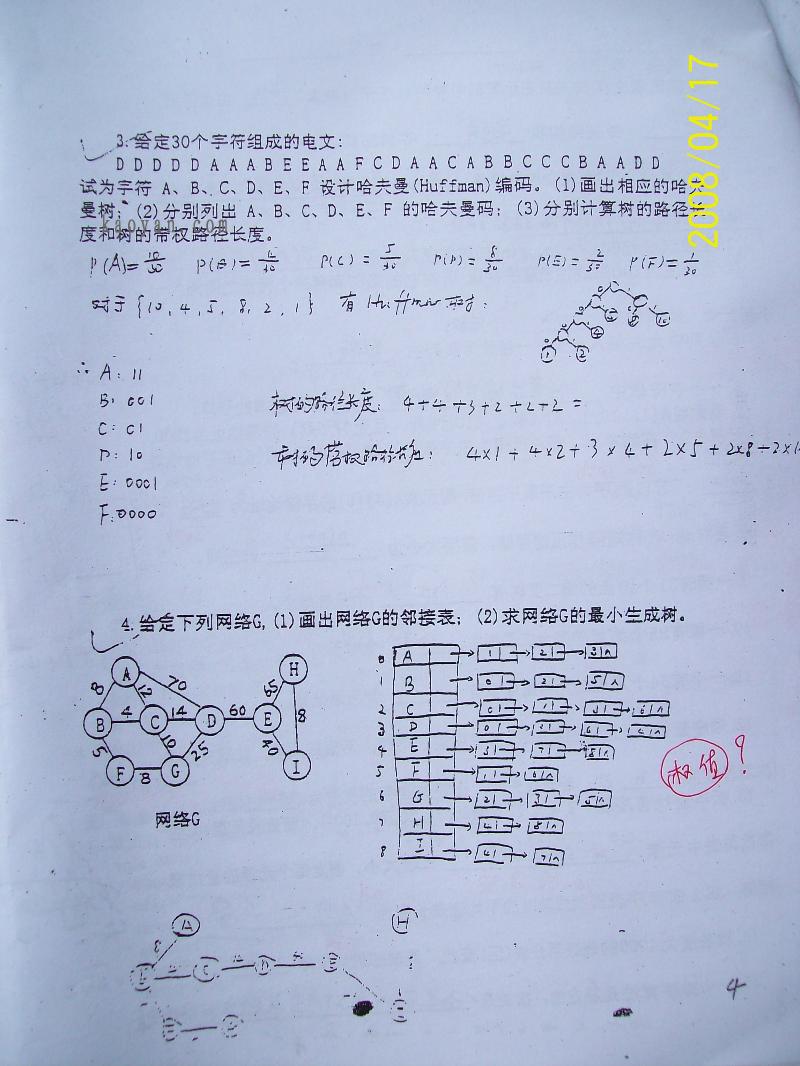 2008/04/17
3.给定30个字符组成的电文:
D D D D D A A A B E E A A F C D A A C A B B C C C B A A D D
试为字符 A、B、C、D、E、F 设计哈夫曼(Huffman)编码。(1)画出相应的哈夫
曼树; (2)分别列出 A、B、C、D、E、F 的哈夫曼码; (3)分别计算树的路径长
kaoyan.com
度和树的带权路径长度。
P(A)=10/30 P(B)=4/30 P(C)=5/30 P(D)=8/30 P(E)=2/30 P(F)=1/30
对于{10, 4, 5, 8, 2, 1} 有 Huffman 树:
∴ A: 11
B: 001
C: 01
D: 10
E: 0001
F: 0000
树的路径长度: 4+4+3+2+2+2=
树的带权路径长度: 4×1+4×2+3×4+2×5+2×8+2×1
4.给定下列网络G,(1)画出网络G的邻接表; (2)求网络G的最小生成树。
A 70 H
8 12 65
B 4 C 14 D 60 E 8
5 10 25
F 8 G I
网络G
0 A 1 2 3 ∧
1 B 0 2 5 ∧
2 C 0 1 3 6 ∧
3 D 0
4 E 3 7 8 ∧
5 F 1 6 ∧
6 G 2 3 5 ∧
7 H 4 8 ∧
8 I 4 7 ∧
权值?
A H
8
4